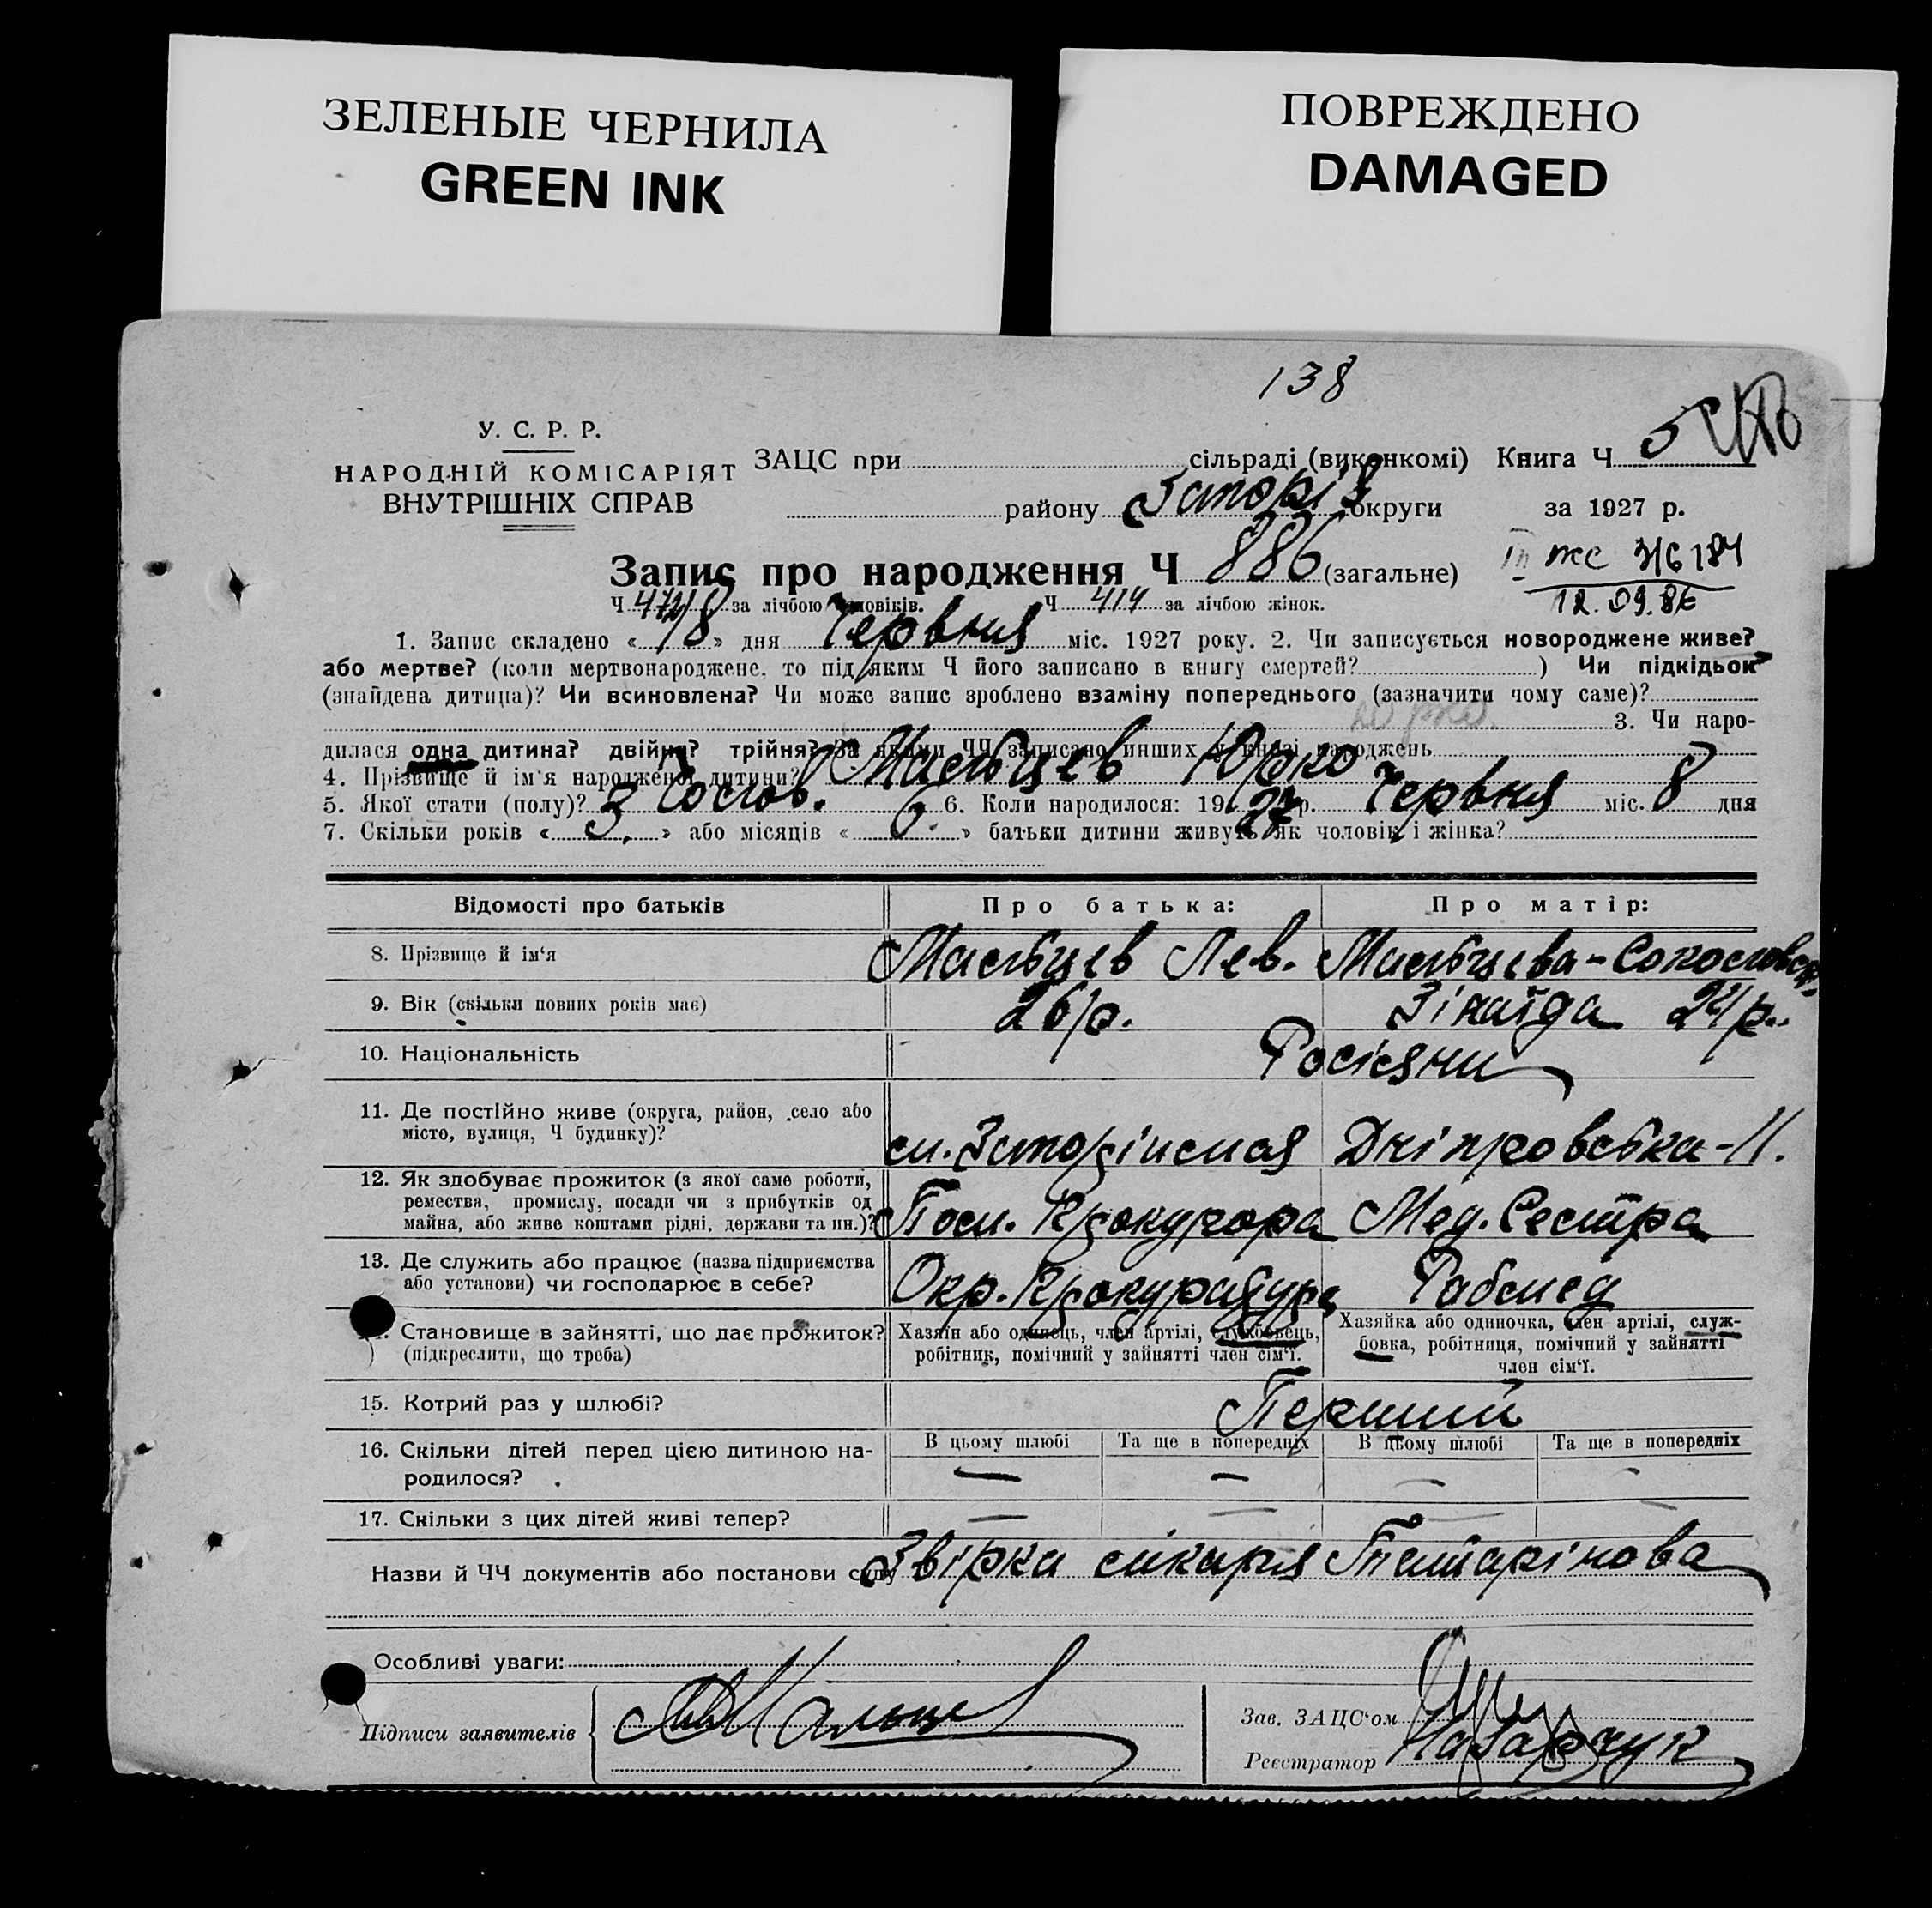 ЗЕЛЕНЫЕ ЧЕРНИЛА
GREEN INK
ПОВРЕЖДЕНО
DAMAGED
138
У. С. Р. Р.
НАРОДНІЙ КОМІСАРІЯТ
ВНУТРІШНІХ СПРАВ
ЗАЦС при сільраді (виконкомі) Книга Ч 5
району округи за 1927 р.
Запис про народження Ч 886 (загальне)
12.09.86
Ч 472 за лічбою чоловіків. Ч 414 за лічбою жінок.
1. Запис складено «18» дня Червня міс. 1927 року. 2. Чи записується новороджене живе?
або мертве? (коли мертвонароджене, то під яким Ч його записано в книгу смертей? ) Чи підкідьок
(знайдена дитина)? Чи всиновлена? Чи може запис зроблено взаміну попереднього (зазначити чому саме)?
3. Чи наро-
дилася одна дитина? двійня? трійня? За якими ЧЧ записано инших у книзі народжень
4. Прізвище й ім'я народженої дитини? Мальцев Юрко
5. Якої стати (полу)? Чолов. 6. Коли народилося: 1927 р. Червня міс. 8 дня
7. Скільки років «3» або місяців «6» батьки дитини живуть як чоловік і жінка?
Відомості про батьків Про батька: Про матір:
8. Прізвище й ім'я Мальцев Лев. Мальцева-Соколовськ.
9. Вік (скільки повних років має) 26 р. Зінаїда 24 р.
10. Національність Росіяни
11. Де постійно живе (округа, район, село або
місто, вулиця, Ч будинку)? Дніпровська-11.
12. Як здобуває прожиток (з якої саме роботи,
ремества, промислу, посади чи з прибутків од
майна, або живе коштами рідні, держави та ин.)? Пом. Прокурора Мед. Сестра
13. Де служить або працює (назва підприємства
або установи) чи господарює в себе? Окр. Прокуратура Рабмед
Становище в зайнятті, що дає прожиток? Хазяїн або одинець, член артілі, службовець, Хазяйка або одиночка, член артілі, служ-
(підкреслити, що треба) робітник, помічний у зайнятті член сім'ї. бовка, робітниця, помічний у зайнятті
член сім'ї.
15. Котрий раз у шлюбі? Перший
16. Скільки дітей перед цією дитиною на- В цьому шлюбі Та ще в попередніх В цьому шлюбі Та ще в попередніх
родилося? — — — —
17. Скільки з цих дітей живі тепер? — — — —
Назви й ЧЧ документів або постанови суду Звірка лікаря Татарінова
Особливі уваги:
Підписи заявителів Мальцев
Зав. ЗАЦС'ом
Реєстратор